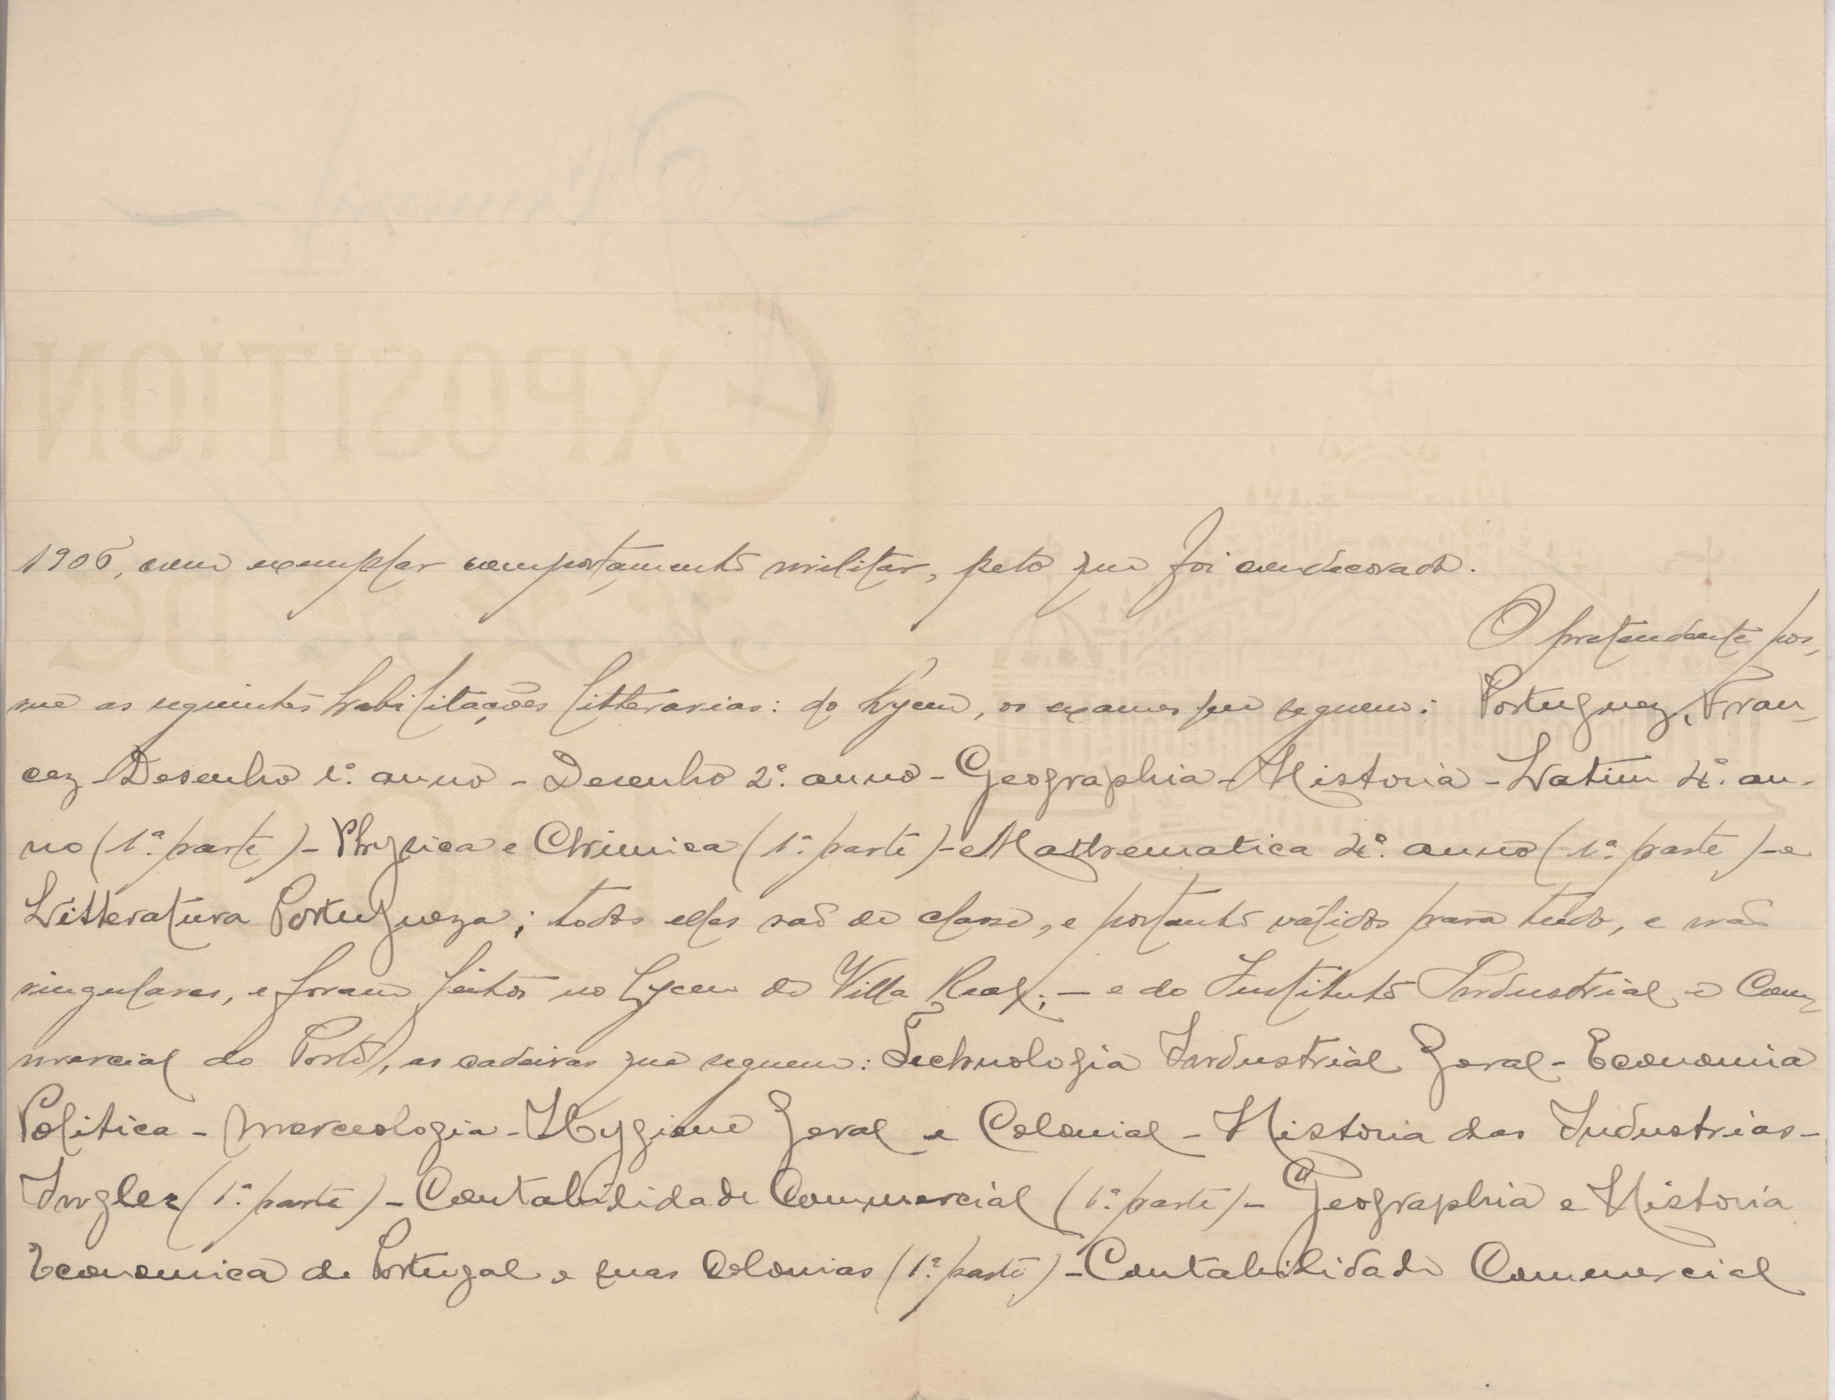 1906, com exemplar comportamento militar, pelo que foi condecorado.
O pretendente pos-
sue as seguintes habilitações litterarias: do Lyceu, os exames que seguem: Portuguez, Fran-
cez - Desenho 1º. anno - Desenho 2º. anno - Geographia - Historia - Latim 4º. an-
no (1ª. parte) - Physica e Chimica (1ª. parte) - Mathematica 4º. anno (1ª. parte) - e
Litteratura Portugueza; todos elles são de classe, e portanto válidos para tudo, e não
singulares, e foram feitos no Lyceu de Villa Real; - e do Instituto Industrial e Com-
mercial do Porto, as cadeiras que seguem: Technologia Industrial Geral - Economia
Politica - Merceologia - Hygiene Geral e Colonial - Historia das Industrias -
Inglez (1ª. parte) - Contabilidade Commercial (1ª. parte) - Geographia e Historia
Economica de Portugal e suas Colonias (1ª. parte) - Contabilidade Commercial